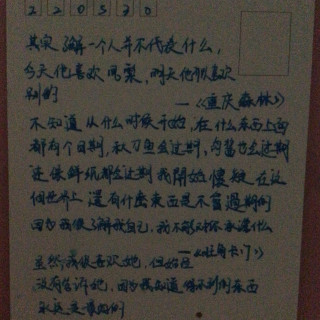 220530
其实了解一个人并不代表什么,
今天他喜欢凤梨,明天他可以喜欢
别的
——《重庆森林》
不知道从什么时候开始,在什么东西上面
都有个日期,秋刀鱼会过期,肉酱也会过期
连保鲜纸都会过期 我開始懷疑 在这
個世界上 還有什麼東西是不會過期的
因为我很了解我自己,我不能对你承諾什么
——《旺角卡门》
虽然我很喜欢她,但始终
没有告诉她,因为我知道得不到的东西
永远是最好的